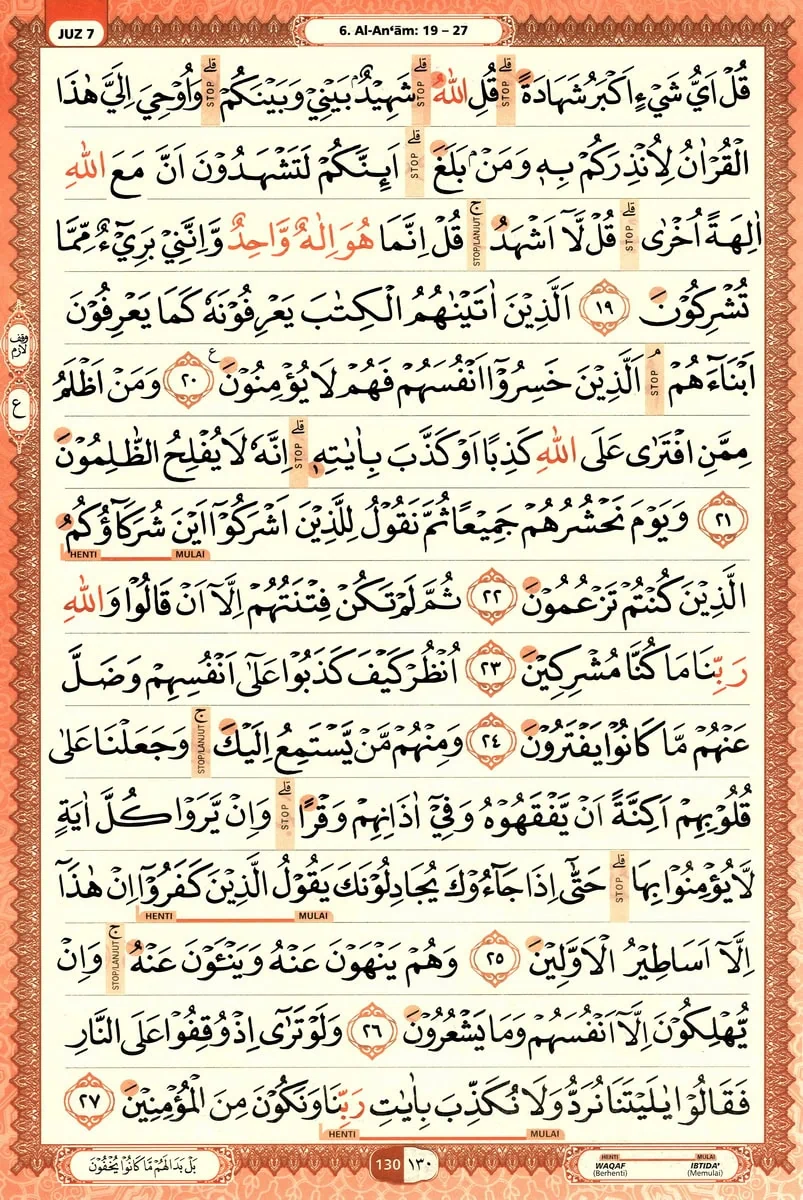 JUZ 7
6. Al-An‘ām: 19 – 27
قُلْ اَيُّ شَيْءٍ اَكْبَرُ شَهَادَةً ۗ STOP قُلِ اللّٰهُ ۗ STOP شَهِيْدٌۢ بَيْنِيْ وَبَيْنَكُمْ ۗ STOP وَاُوْحِيَ اِلَيَّ هٰذَا
الْقُرْاٰنُ لِاُنْذِرَكُمْ بِهٖ وَمَنْۢ بَلَغَ ۗ STOP اَىِٕنَّكُمْ لَتَشْهَدُوْنَ اَنَّ مَعَ اللّٰهِ
اٰلِهَةً اُخْرٰى ۗ STOP قُلْ لَّآ اَشْهَدُ ۚ STOP/LANJUT قُلْ اِنَّمَا هُوَ اِلٰهٌ وَّاحِدٌ وَّاِنَّنِيْ بَرِيْۤءٌ مِّمَّا
تُشْرِكُوْنَ ١٩ اَلَّذِيْنَ اٰتَيْنٰهُمُ الْكِتٰبَ يَعْرِفُوْنَهٗ كَمَا يَعْرِفُوْنَ
وقف لازم
اَبْنَاۤءَهُمْ ۘ STOP اَلَّذِيْنَ خَسِرُوْٓا اَنْفُسَهُمْ فَهُمْ لَا يُؤْمِنُوْنَ ࣖ ٢٠ وَمَنْ اَظْلَمُ
ع
مِمَّنِ افْتَرٰى عَلَى اللّٰهِ كَذِبًا اَوْ كَذَّبَ بِاٰيٰتِهٖ ۗ STOP اِنَّهٗ لَا يُفْلِحُ الظّٰلِمُوْنَ
٢١ وَيَوْمَ نَحْشُرُهُمْ جَمِيْعًا ثُمَّ نَقُوْلُ لِلَّذِيْنَ اَشْرَكُوْٓا اَيْنَ شُرَكَاۤؤُكُمُ
HENTI MULAI
الَّذِيْنَ كُنْتُمْ تَزْعُمُوْنَ ٢٢ ثُمَّ لَمْ تَكُنْ فِتْنَتُهُمْ اِلَّآ اَنْ قَالُوْا وَاللّٰهِ
رَبِّنَا مَا كُنَّا مُشْرِكِيْنَ ٢٣ اُنْظُرْ كَيْفَ كَذَبُوْا عَلٰٓى اَنْفُسِهِمْ وَضَلَّ
عَنْهُمْ مَّا كَانُوْا يَفْتَرُوْنَ ٢٤ وَمِنْهُمْ مَّنْ يَّسْتَمِعُ اِلَيْكَ ۚ STOP/LANJUT وَجَعَلْنَا عَلٰى
قُلُوْبِهِمْ اَكِنَّةً اَنْ يَّفْقَهُوْهُ وَفِيْٓ اٰذَانِهِمْ وَقْرًا ۗ STOP وَاِنْ يَّرَوْا كُلَّ اٰيَةٍ
لَّا يُؤْمِنُوْا بِهَا ۗ STOP حَتّٰٓى اِذَا جَاۤءُوْكَ يُجَادِلُوْنَكَ يَقُوْلُ الَّذِيْنَ كَفَرُوْٓا اِنْ هٰذَآ
HENTI MULAI
اِلَّآ اَسَاطِيْرُ الْاَوَّلِيْنَ ٢٥ وَهُمْ يَنْهَوْنَ عَنْهُ وَيَنْـَٔوْنَ عَنْهُ ۚ STOP/LANJUT وَاِنْ
يُّهْلِكُوْنَ اِلَّآ اَنْفُسَهُمْ وَمَا يَشْعُرُوْنَ ٢٦ وَلَوْ تَرٰٓى اِذْ وُقِفُوْا عَلَى النَّارِ
فَقَالُوْا يٰلَيْتَنَا نُرَدُّ وَلَا نُكَذِّبَ بِاٰيٰتِ رَبِّنَا وَنَكُوْنَ مِنَ الْمُؤْمِنِيْنَ ٢٧
HENTI MULAI
بَلْ بَدَا لَهُمْ مَّا كَانُوْا يُخْفُوْنَ
130 ١٣٠
HENTI MULAI
WAQAF IBTIDA'
(Berhenti) (Memulai)